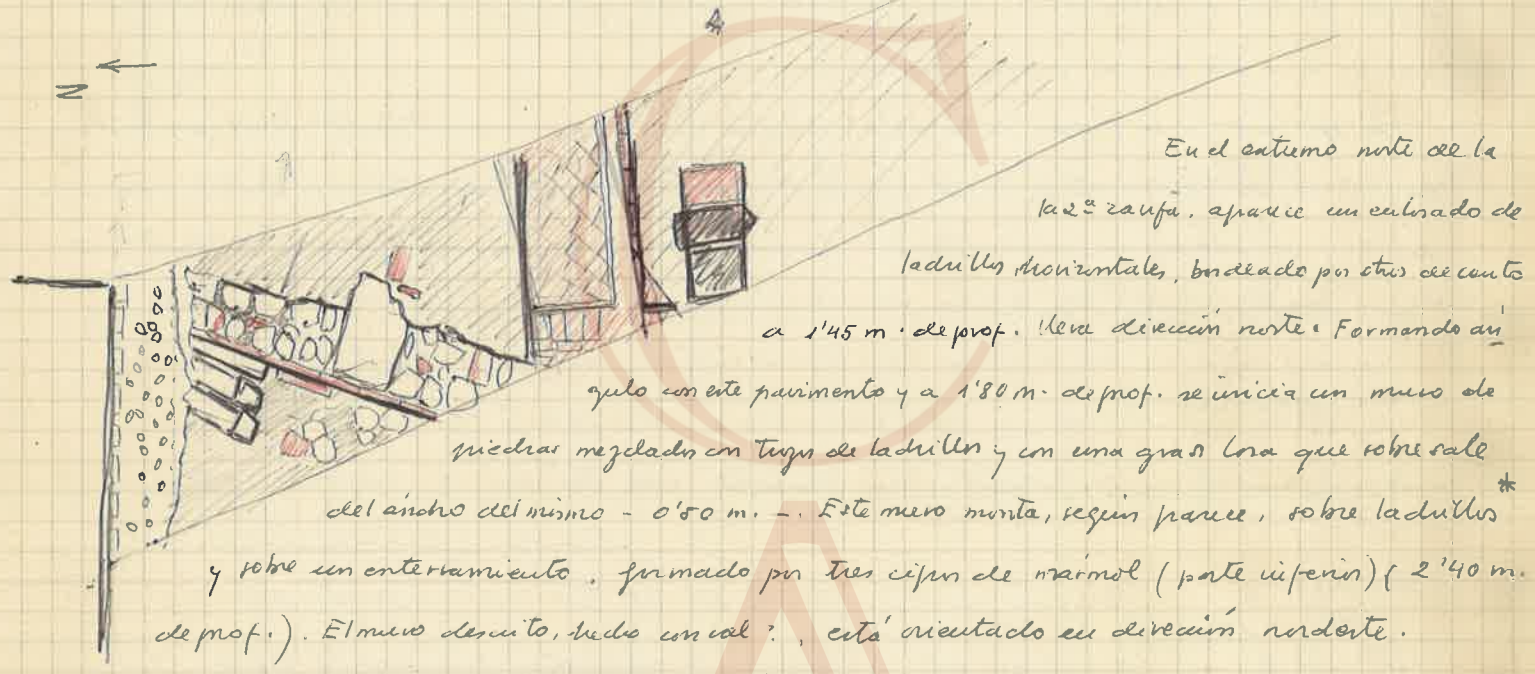 N
En el extremo norte de la
la 2ª zanja. aparece un enlosado de
ladrillos horizontales, bordeado por otros de canto
a 1'45 m. de prof. lleva dirección norte. Formando án
gulo con este pavimento y a 1'80 m. de prof. se inicia un muro de
piedras mezclados con trozos de ladrillos y con una gran losa que sobresale
del ancho del mismo - 0'50 m. -. Este muro monta, según parece, sobre ladrillos *
y sobre un enterramiento. formado por tres cipos de mármol (parte inferior) ( 2'40 m.
de prof.). El muro descrito, hecho con cal ?, está orientado en dirección nordeste.